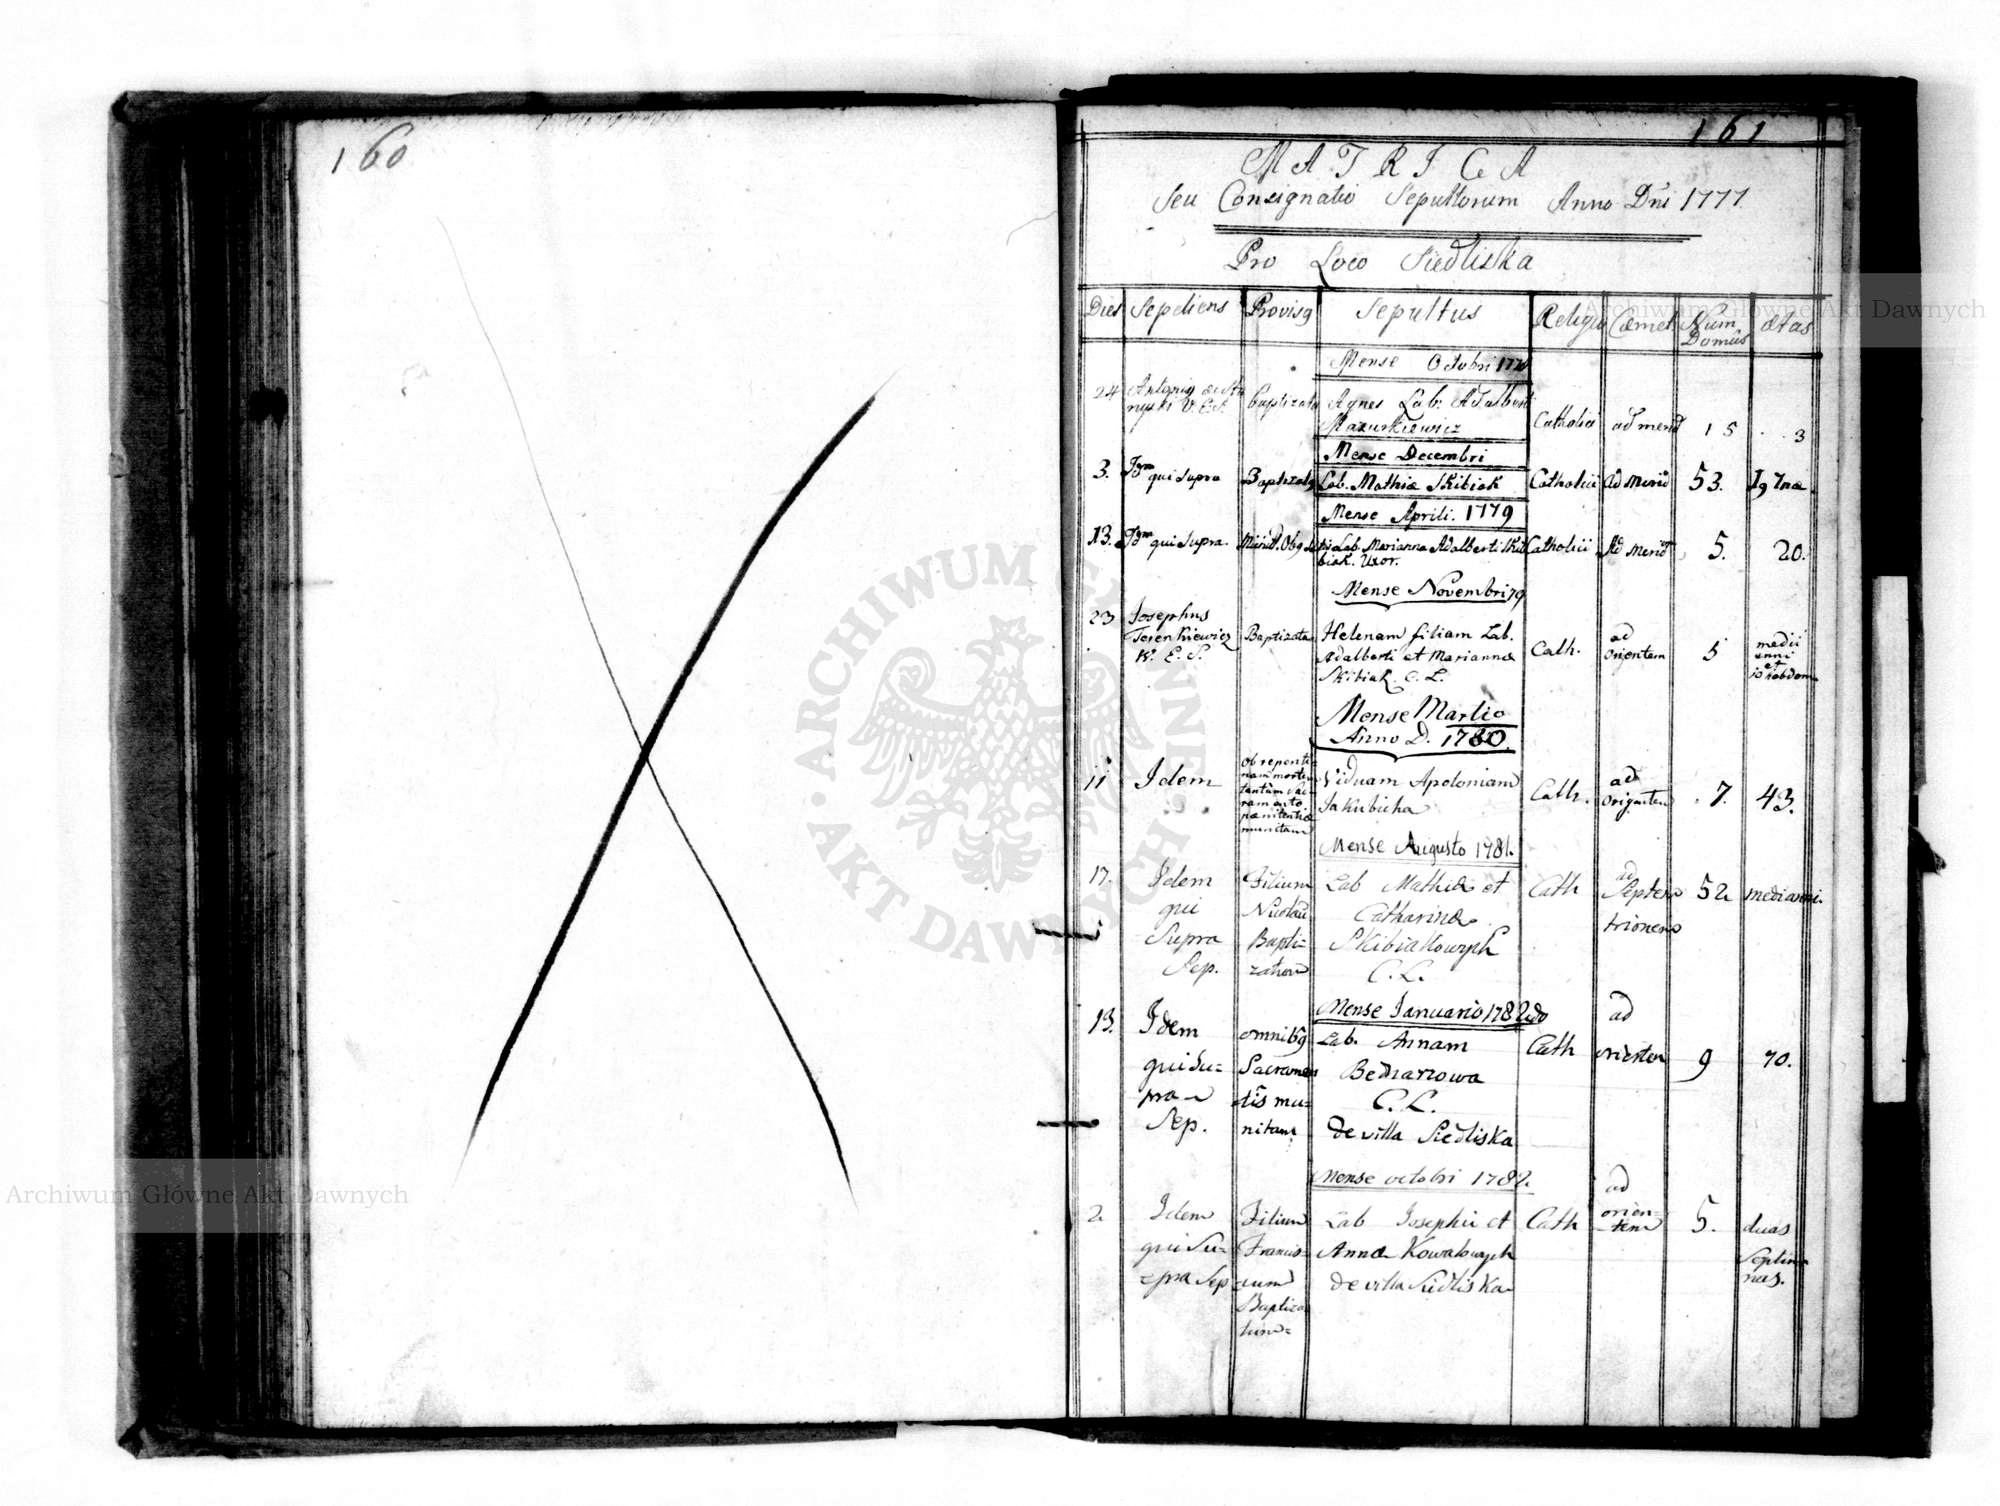 160
161
MATRICA
Seu Consignatio Sepultorum Anno Dni 1777
Pro Loco Siedliska
Dies Sepeliens Provisq Sepultus Religio Cæmet Num Domûs ætas
Mense Octobri 1778
24 Antoniq V. E. S. baptizata Agnes Lab. Adalberti Mazurkiewicz Catholici ad merid 15 3
Mense Decembri
3. Idem qui supra Baptizatq Lab. Mathiæ Skibiak Catholici Ad Merid 53.
Mense Aprili. 1779
13. Idem qui supra. Lab. Marianna Adalberti Skibiak. Uxor. Catholici Ad Merid 5. 20.
Mense Novembri 79
23 Josephus Terenkiewicz V. E. S. Baptizata Helenam filiam Lab. Adalberti et Mariannæ Skibiak. C. L. Cath. ad orientem 5 medii anni et 10 hebdom
Mense Martio
Anno D. 1780.
11 Idem ob repentinam mortem tantum sacramento pænitentiæ munitam Viduam Apoloniam Jakubicha Cath. ad orientem 7. 43.
Mense Augusto 1781.
17. Idem qui Supra Sep. Filium Nicolaum Baptizatum Lab Mathiæ et Catharinæ Skibiakowych C. L. Cath ad Septemtrionem 52 medi anni.
Mense Januario 1782do
13. Idem qui Su=pra Sep. omnibq Sacramentis mu=nitam Lab. Annam Bednarzowa C. L. de villa Siedliska Cath ad orientem 9 70.
Mense octobri 1782.
2. Idem qui Su=pra Sep Filium Francis=cum Baptizatum= Lab Josephi et Annæ Kowalowych de villa Siedliska Cath ad orien=tem 5. duas Septimanas.
Archiwum Główne Akt Dawnych
Archiwum Główne Akt Dawnych
ARCHIWUM GŁÓWNE
AKT DAWNYCH